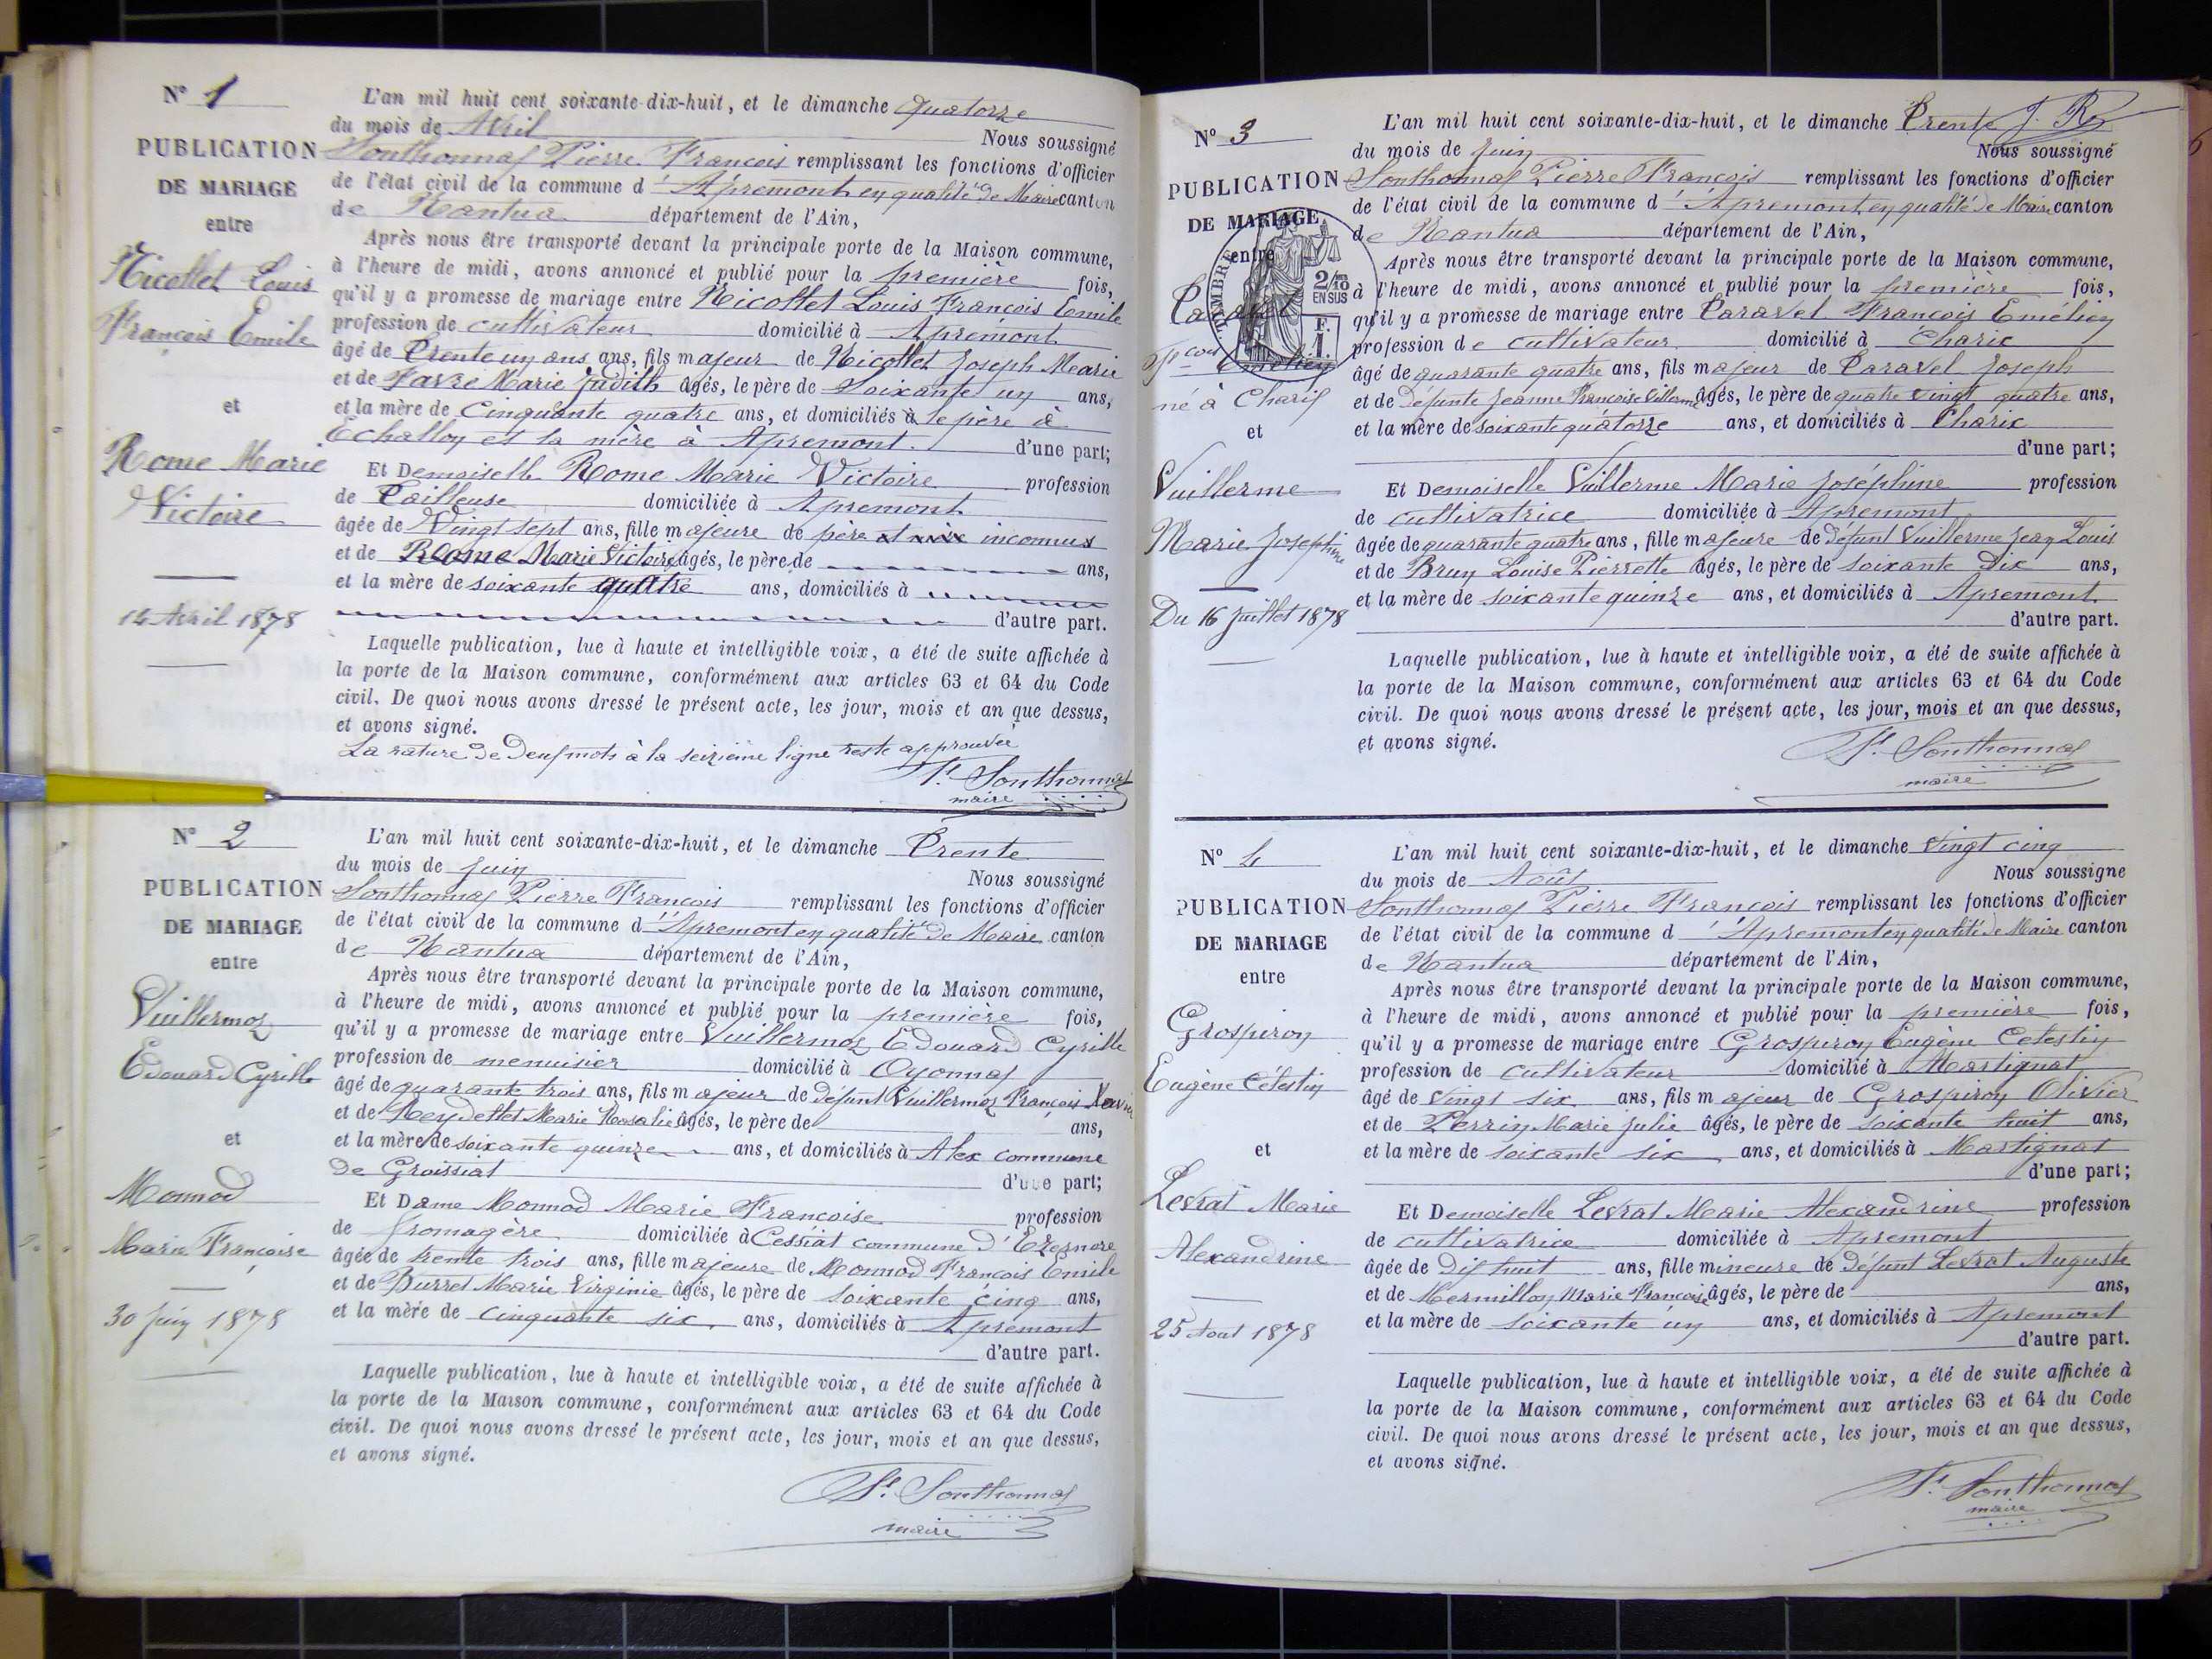 N° 1
PUBLICATION
DE MARIAGE
entre
Nicollet Louis
François Emile
et
Rome Marie
Victoire
14 Avril 1878
L'an mil huit cent soixante-dix-huit, et le dimanche quatorze
du mois de Avril Nous soussigné
Sonthonnax Pierre François remplissant les fonctions d'officier
de l'état civil de la commune d'Apremont en qualité de Maire canton
de Nantua département de l'Ain,
Après nous être transporté devant la principale porte de la Maison commune,
à l'heure de midi, avons annoncé et publié pour la première fois,
qu'il y a promesse de mariage entre Nicollet Louis François Emile
profession de cultivateur domicilié à Apremont
âgé de Trente un ans ans, fils majeur de Nicollet Joseph Marie
et de Favre Marie Judith âgés, le père de Soixante un ans,
et la mère de Cinquante quatre ans, et domiciliés à le père à
Echallon et la mère à Apremont. d'une part;
Et Demoiselle Rome Marie Victoire profession
de Tailleuse domiciliée à Apremont
âgée de Vingt sept ans, fille majeure de père et mère inconnus
et de Rome Marie Victoire âgés, le père de ans,
et la mère de soixante quatre ans, domiciliés à
d'autre part.
Laquelle publication, lue à haute et intelligible voix, a été de suite affichée à
la porte de la Maison commune, conformément aux articles 63 et 64 du Code
civil. De quoi nous avons dressé le présent acte, les jour, mois et an que dessus,
et avons signé.
La rature de deux mots à la seizième ligne reste approuvée
Sonthonnax
maire
N° 2
PUBLICATION
DE MARIAGE
entre
Vuillermoz
Edouard Cyrille
et
Monnod
Marie Françoise
30 Juin 1878
L'an mil huit cent soixante-dix-huit, et le dimanche Trente
du mois de Juin Nous soussigné
Sonthonnax Pierre François remplissant les fonctions d'officier
de l'état civil de la commune d'Apremont en qualité de Maire canton
de Nantua département de l'Ain,
Après nous être transporté devant la principale porte de la Maison commune,
à l'heure de midi, avons annoncé et publié pour la première fois,
qu'il y a promesse de mariage entre Vuillermoz Edouard Cyrille
profession de menuisier domicilié à Oyonnax
âgé de quarante trois ans, fils majeur de défunt Vuillermoz François Xavier
et de Reydellet Marie Rosalie âgés, le père de ans,
et la mère de soixante quinze ans, et domiciliés à Alex commune
de Groissiat d'une part;
Et Dame Monnod Marie Françoise profession
de fromagère domiciliée à Cessiat commune d'Izernore
âgée de trente trois ans, fille majeure de Monnod François Emile
et de Burret Marie Virginie âgés, le père de soixante cinq ans,
et la mère de cinquante six ans, domiciliés à Apremont
d'autre part.
Laquelle publication, lue à haute et intelligible voix, a été de suite affichée à
la porte de la Maison commune, conformément aux articles 63 et 64 du Code
civil. De quoi nous avons dressé le présent acte, les jour, mois et an que dessus,
et avons signé.
Sonthonnax
maire
N° 3
PUBLICATION
DE MARIAGE
entre
TIMBRE
2/10
EN SUS
F.
1.
Caravel
fçois Emélien
né à Charix
et
Vuillerme
Marie Joséphine
Du 16 juillet 1878
L'an mil huit cent soixante-dix-huit, et le dimanche Trente
du mois de Juin Nous soussigné
Sonthonnax Pierre François remplissant les fonctions d'officier
de l'état civil de la commune d'Apremont en qualité de Maire canton
de Nantua département de l'Ain,
Après nous être transporté devant la principale porte de la Maison commune,
à l'heure de midi, avons annoncé et publié pour la première fois,
qu'il y a promesse de mariage entre Caravel François Emélien
profession de cultivateur domicilié à Charix
âgé de quarante quatre ans, fils majeur de Caravel Joseph
et de défunte Jeanne Françoise Villerme âgés, le père de quatre vingt quatre ans,
et la mère de soixante quatorze ans, et domiciliés à Charix
d'une part;
Et Demoiselle Vuillerme Marie Joséphine profession
de cultivatrice domiciliée à Apremont
âgée de quarante quatre ans, fille majeure de défunt Vuillerme Jean Louis
et de Brun Louise Pierrette âgés, le père de soixante dix ans,
et la mère de soixante quinze ans, et domiciliés à Apremont
d'autre part.
Laquelle publication, lue à haute et intelligible voix, a été de suite affichée à
la porte de la Maison commune, conformément aux articles 63 et 64 du Code
civil. De quoi nous avons dressé le présent acte, les jour, mois et an que dessus,
et avons signé.
Sonthonnax
maire
N° 4
PUBLICATION
DE MARIAGE
entre
Grospiron
Eugène Célestin
et
Levrat Marie
Alexandrine
25 Aout 1878
L'an mil huit cent soixante-dix-huit, et le dimanche Vingt cinq
du mois de Août Nous soussigné
Sonthonnax Pierre François remplissant les fonctions d'officier
de l'état civil de la commune d'Apremont en qualité de Maire canton
de Nantua département de l'Ain,
Après nous être transporté devant la principale porte de la Maison commune,
à l'heure de midi, avons annoncé et publié pour la première fois,
qu'il y a promesse de mariage entre Grospiron Eugène Celestin
profession de cultivateur domicilié à Martignat
âgé de vingt six ans, fils majeur de Grospiron Olivier
et de Perrin Marie Julie âgés, le père de soixante huit ans,
et la mère de soixante six ans, et domiciliés à Martignat
d'une part;
Et Demoiselle Levrat Marie Alexandrine profession
de cultivatrice domiciliée à Apremont
âgée de dix huit ans, fille mineure de défunt Levrat Auguste
et de Mermillon Marie Françoise âgés, le père de ans,
et la mère de soixante un ans, et domiciliés à Apremont
d'autre part.
Laquelle publication, lue à haute et intelligible voix, a été de suite affichée à
la porte de la Maison commune, conformément aux articles 63 et 64 du Code
civil. De quoi nous avons dressé le présent acte, les jour, mois et an que dessus,
et avons signé.
Sonthonnax
maire